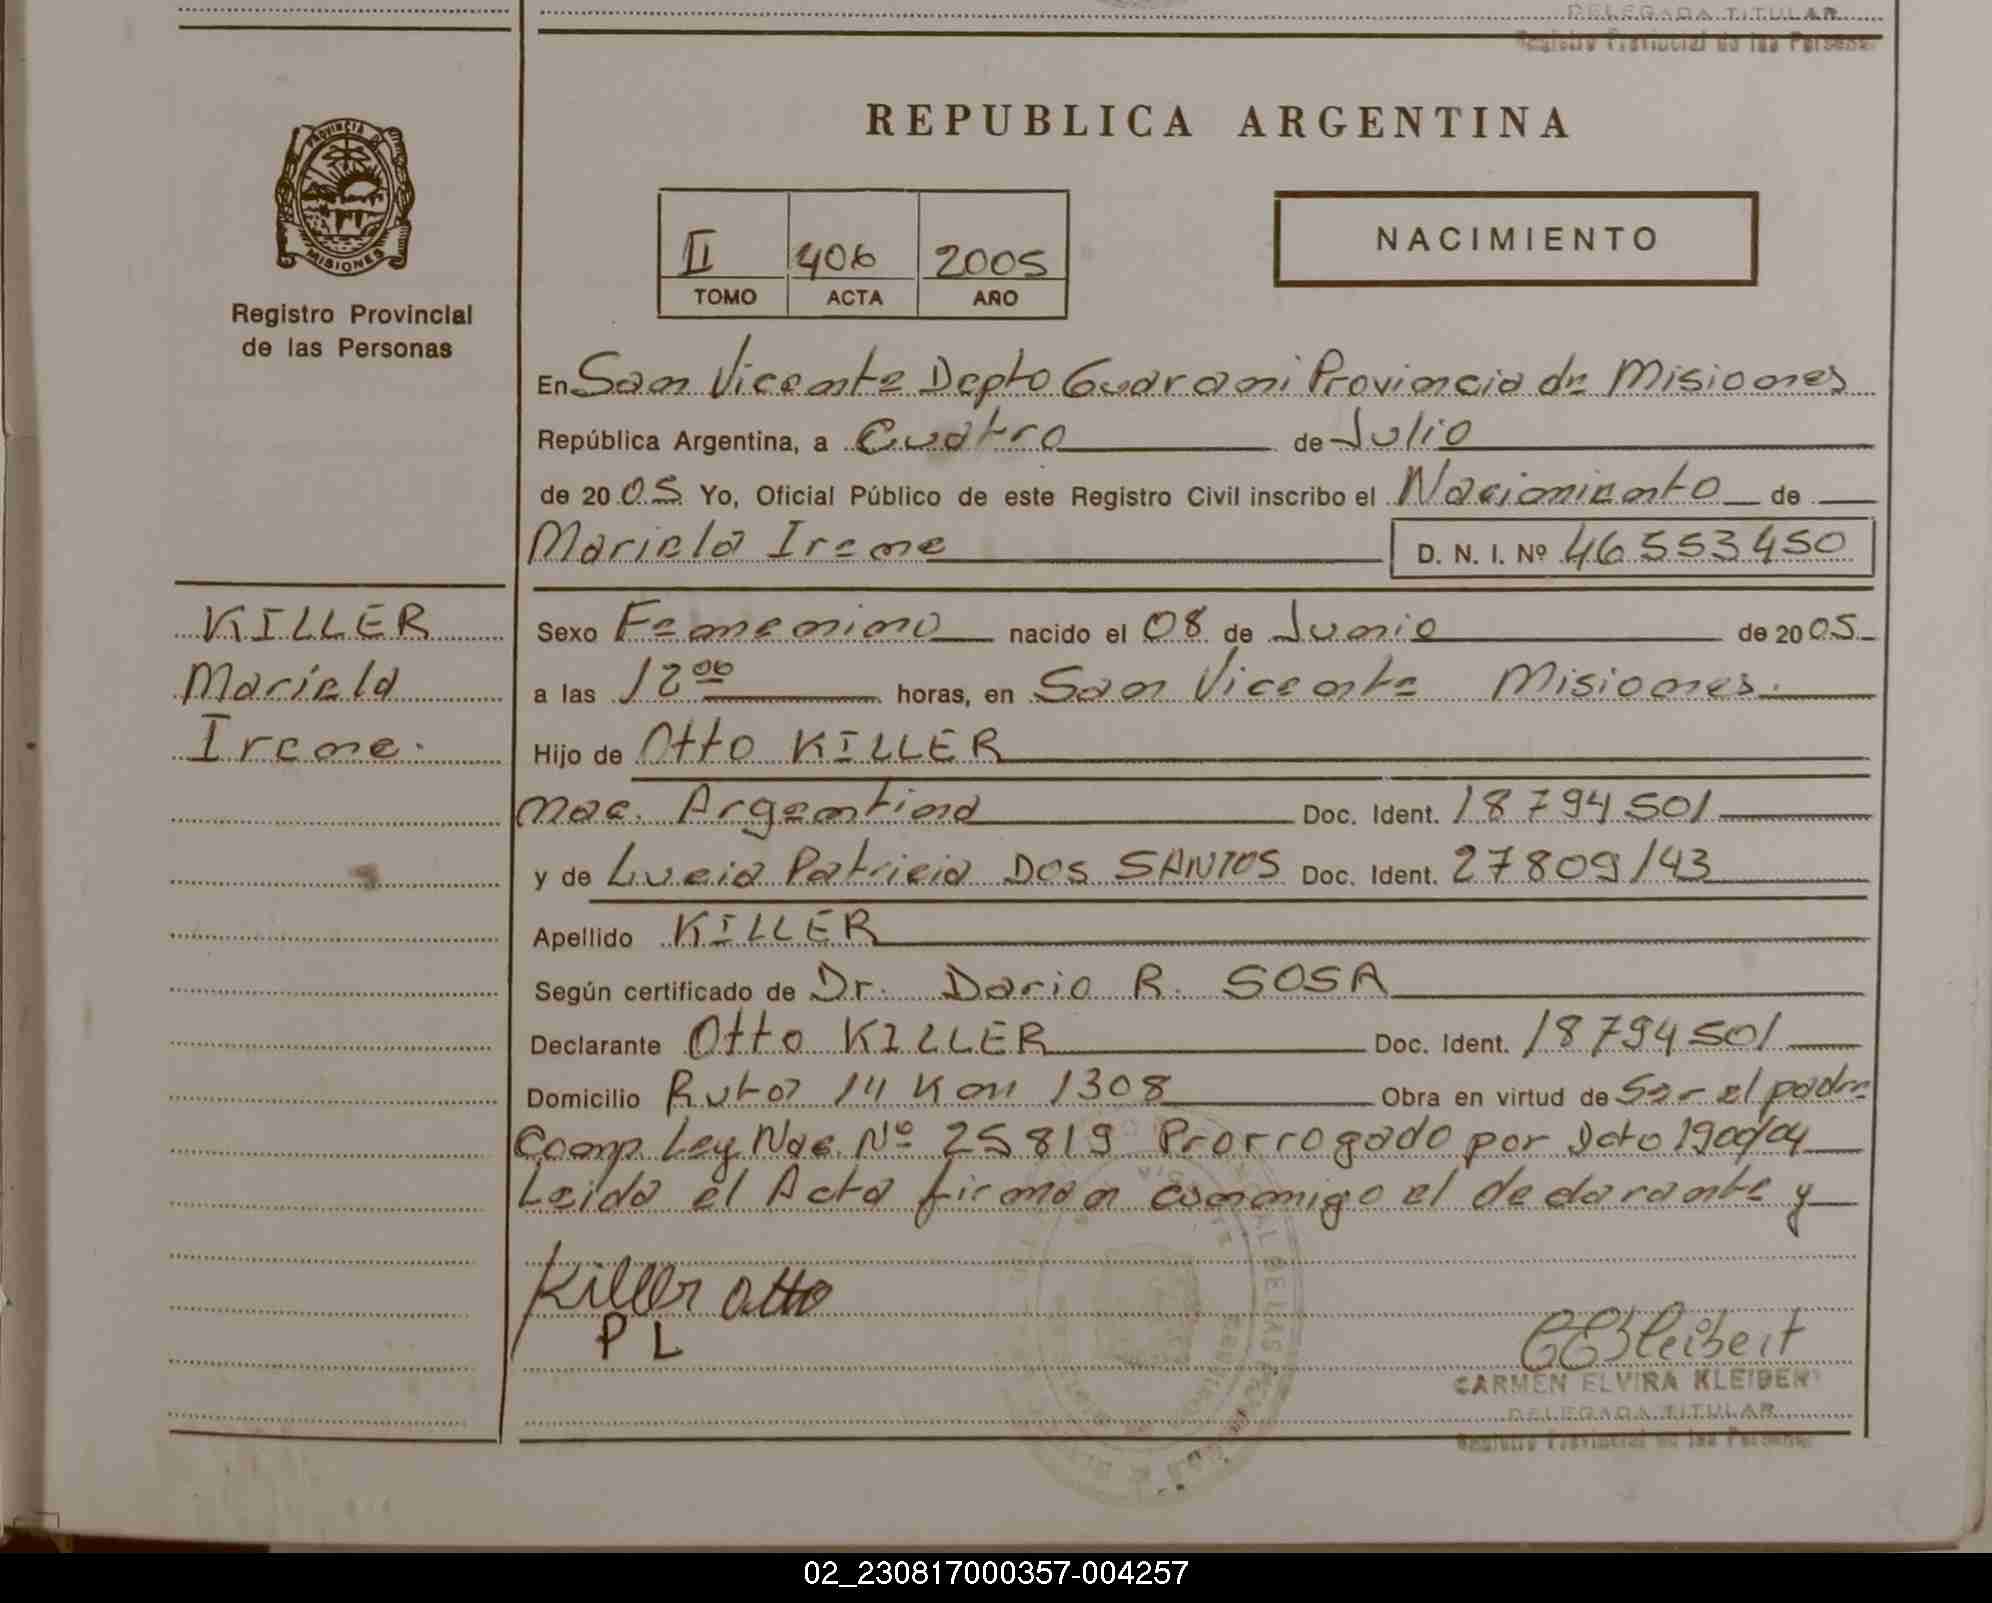 DELEGADA TITULAR
Registro Provincial de las Personas
REPUBLICA ARGENTINA
PROVINCIA DE
MISIONES
Registro Provincial
de las Personas
II 406 2005
TOMO ACTA AÑO
NACIMIENTO
En San Vicente Depto Guarani Provincia de Misiones
República Argentina, a Cuatro de Julio
de 2005 Yo, Oficial Público de este Registro Civil inscribo el Nacimiento de
Mariela Irene D. N. I. Nº 46553450
KILLER
Mariela
Irene.
Sexo Femenino nacido el 08 de Junio de 2005
a las 12 00 horas, en San Vicente Misiones.
Hijo de Otto KILLER
nac. Argentina Doc. Ident. 18794501
y de Lucia Patricia DOS SANTOS Doc. Ident. 27809143
Apellido KILLER
Según certificado de Dr. Dario R. SOSA
Declarante Otto KILLER Doc. Ident. 18794501
Domicilio Ruta 14 Km 1308 Obra en virtud de Ser el padre
Comp. Ley Nac. Nº 25819 Prorrogado por Dcto 1900/04
Leida el Acta firman conmigo el declarante y
Killer otto
P L
CEKleibert
CARMEN ELVIRA KLEIBERT
DELEGADA TITULAR
Registro Provincial de las Personas
02_230817000357-004257